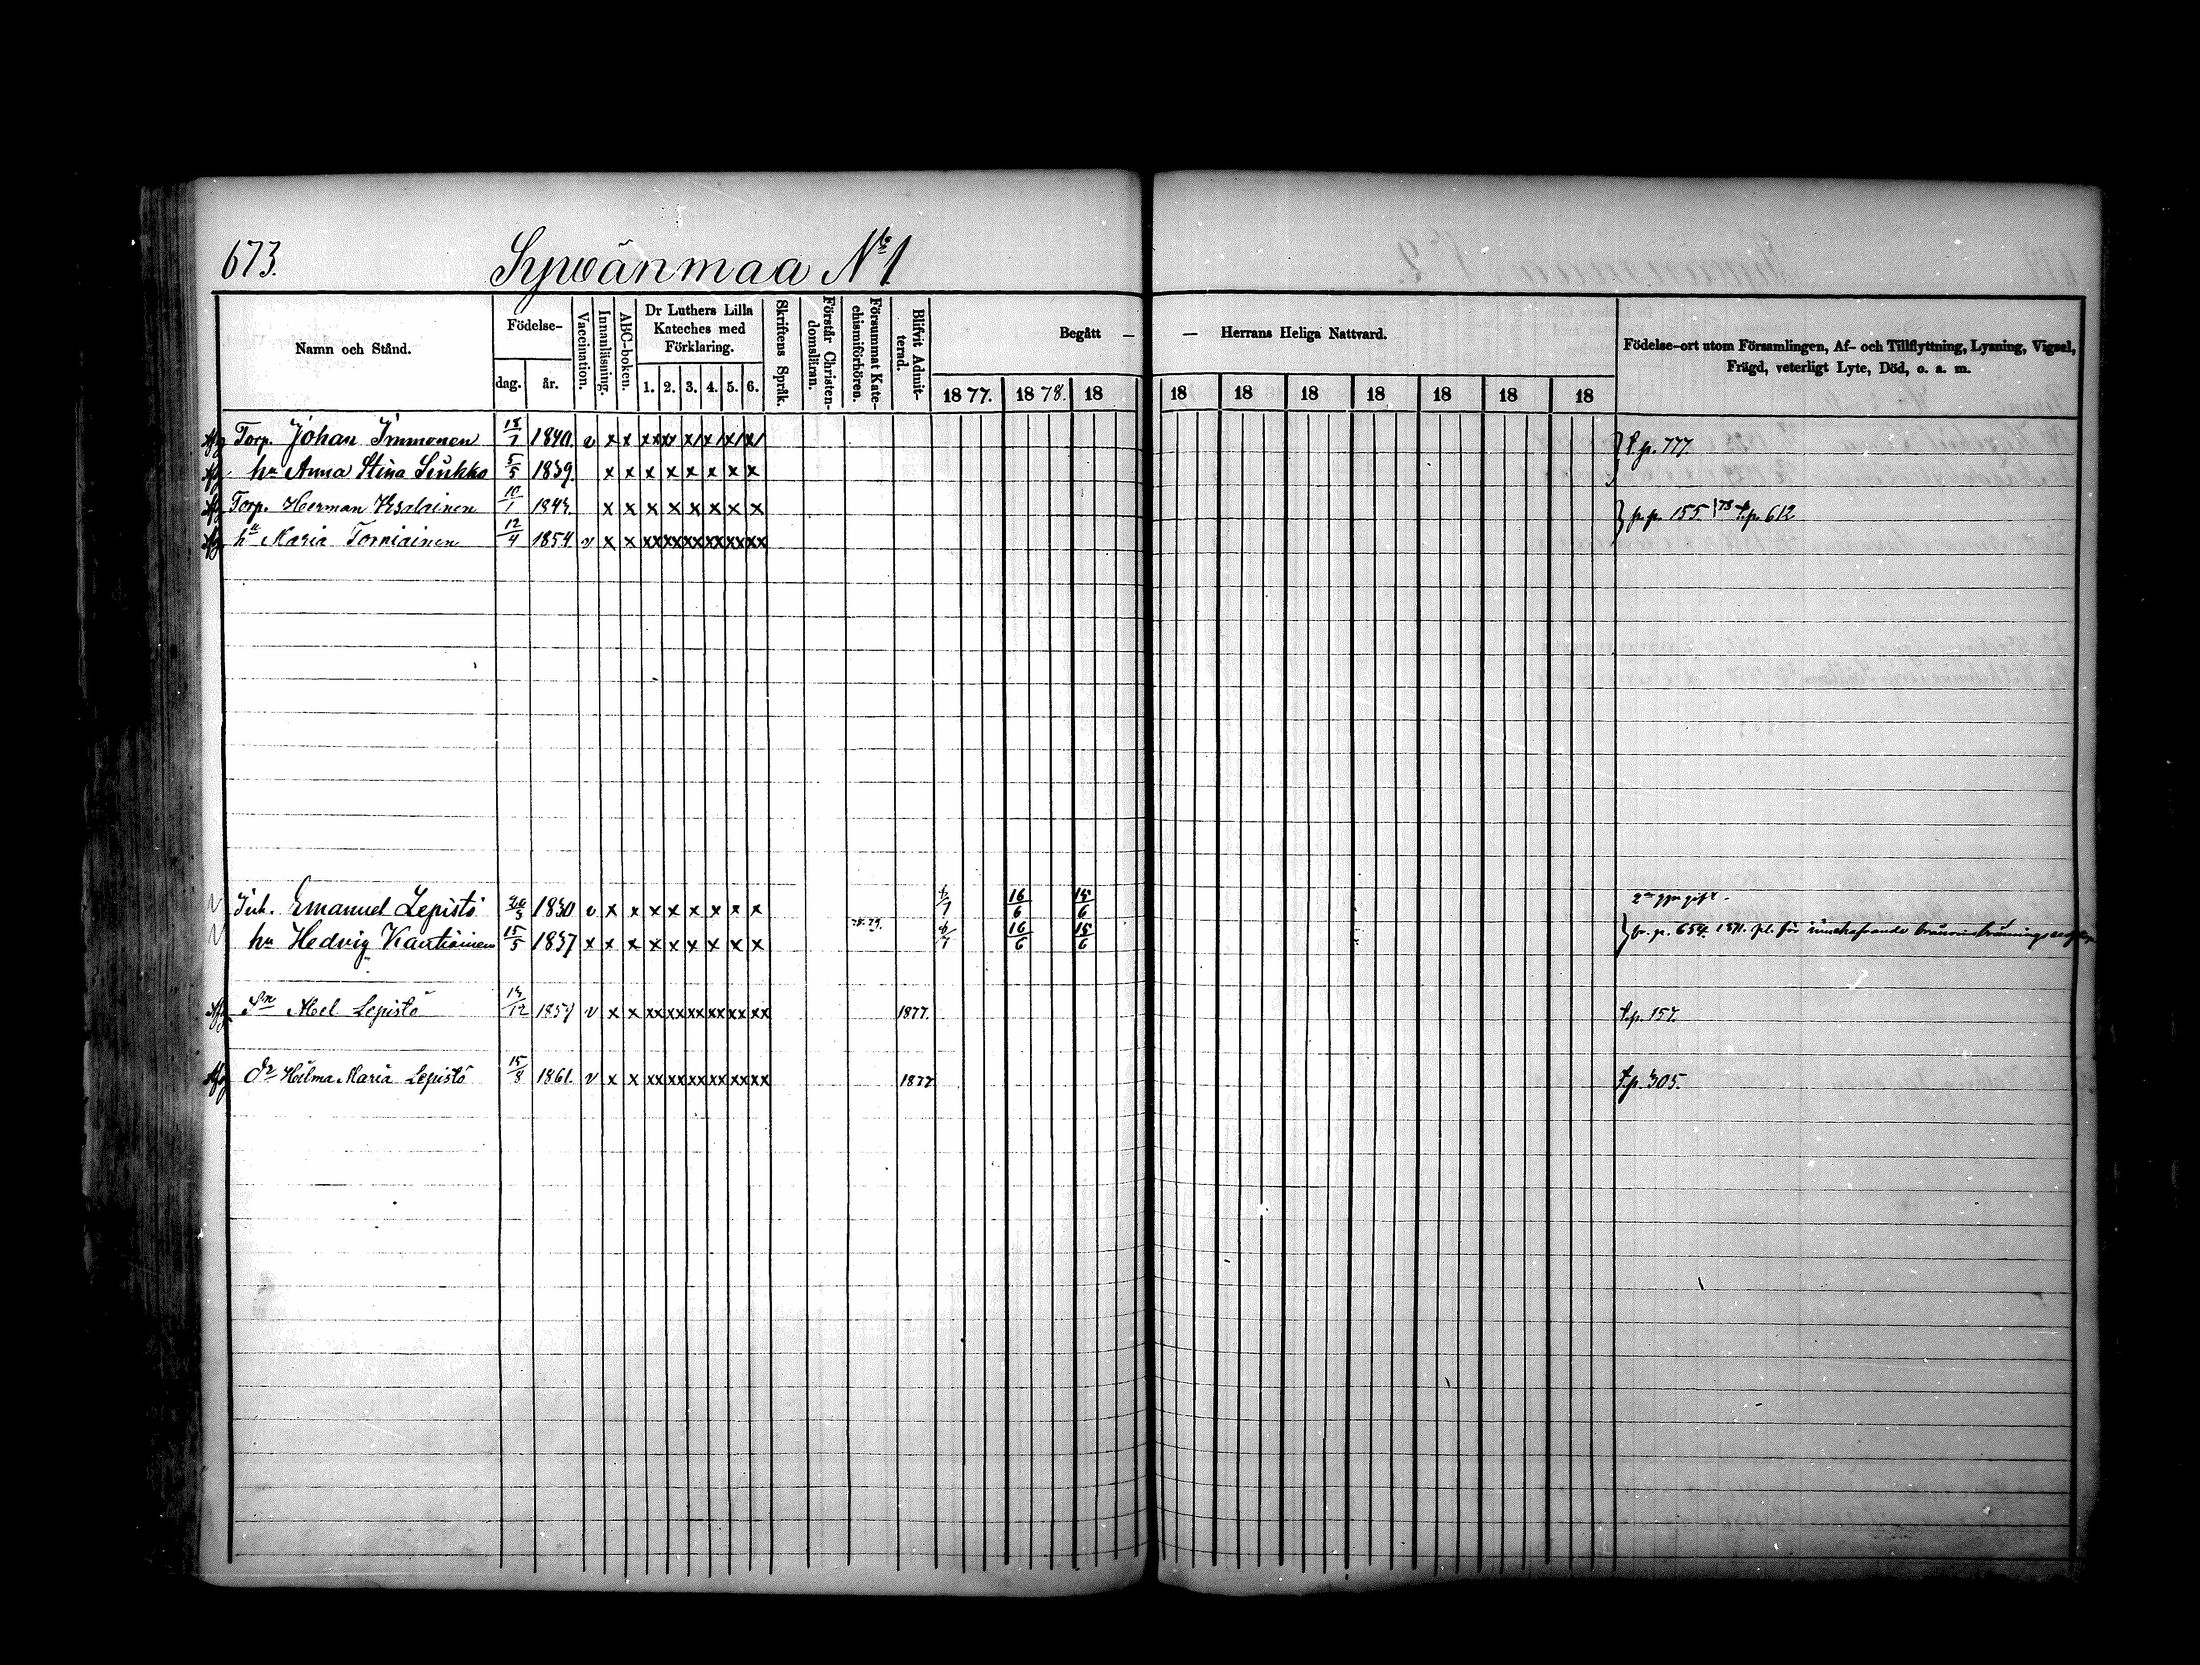 673.
Sywänmaa No 1
Namn och Stånd.
Födelse-
dag.
år.
Vaccination.
Innanläsning.
ABC-boken.
Dr Luthers Lilla
Kateches med
Förklaring.
1. 2. 3. 4. 5. 6.
Skriftens Språk.
Förstår Christen-
domsläran.
Försummat Kate-
chismiförhören.
Blifvit Admit-
terad.
Begått — — Herrans Heliga Nattvard.
1877. 1878. 18 18 18 18 18 18 18 18
Födelse-ort utom Församlingen, Af- och Tillflyttning, Lysning, Vigsel,
Frägd, veterligt Lyte, Död, o. a. m.
Torp. Johan Immonen 18/7 1840. v x x t.p. 777.
hu Anna Stina 5/5 1839. x x x x x x x x
Torp. Herman 10/1 x x x x x x x x p.p. 155. t.p. 612
hu Maria Torniainen 12/4 1854 v x x xx xx xx xx xx xx
Inh. Emanuel Lepistö 1830 v x x x x x x x x 16/6 15/6 2dra ggn gift.
hu Hedvig Kautiainen 15/5 1837 x x x x x x x x x 78.79. 16/6 15/6 fr. p. 654. 1871. för
Sn Abel Lepistö 1857 v x x xx xx xx xx xx xx 1877. t.p. 157.
Dr Hilma Maria Lepistö 15/8 1861. v x x xx xx xx xx xx xx 1877 t.p. 305.